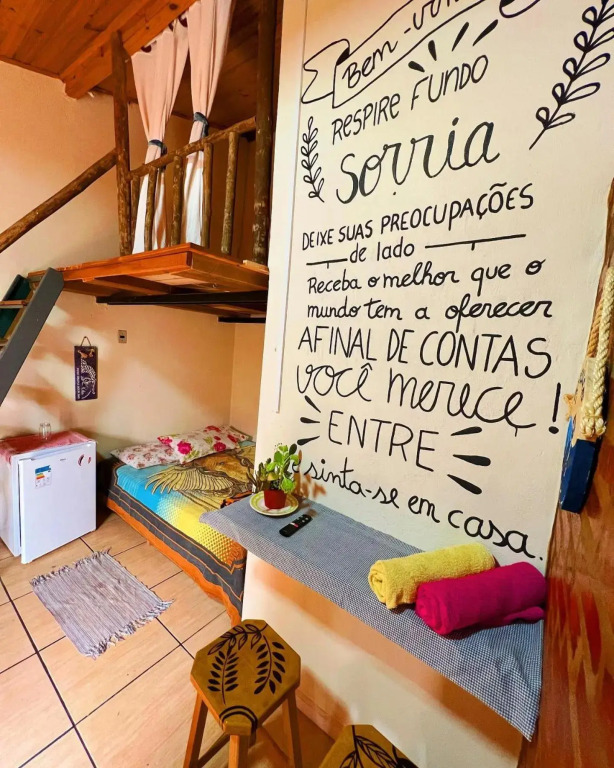 Bem-vindo
RESPIRE FUNDO
Sorria
DEIXE SUAS PREOCUPAÇÕES
de lado
Receba o melhor que o
mundo tem a oferecer
AFINAL DE CONTAS
você merece!
ENTRE
e sinta-se em casa.